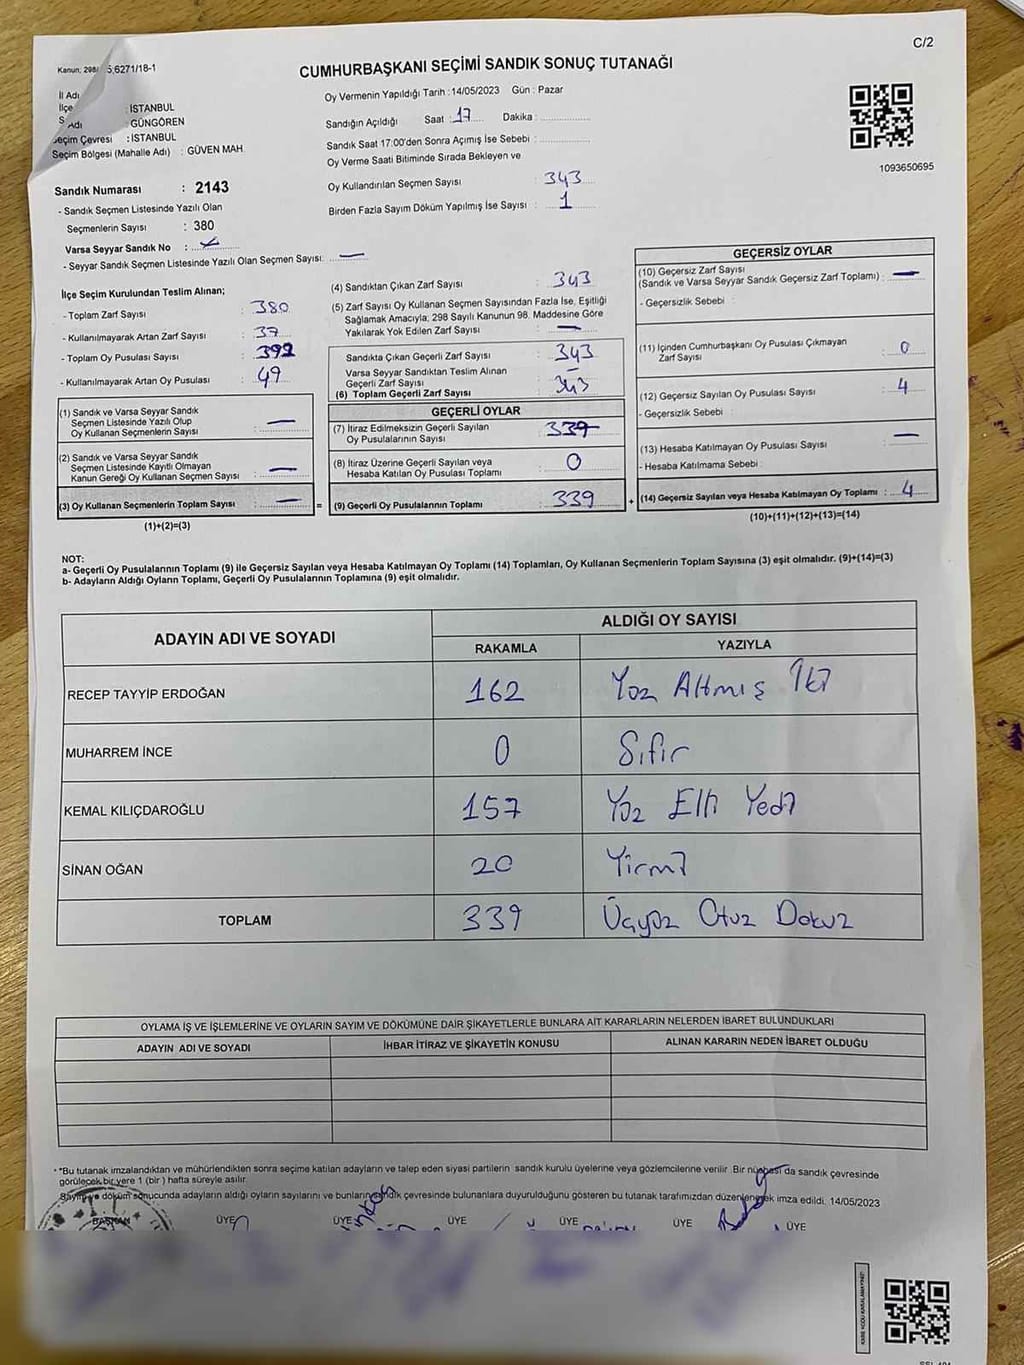 C/2
Kanun; 298/ 5,6271/18-1
CUMHURBAŞKANI SEÇİMİ SANDIK SONUÇ TUTANAĞI
İl Adı
İlçe : İSTANBUL
Adı : GÜNGÖREN
Seçim Çevresi : İSTANBUL
Seçim Bölgesi (Mahalle Adı) : GÜVEN MAH.
Sandık Numarası : 2143
- Sandık Seçmen Listesinde Yazılı Olan
Seçmenlerin Sayısı : 380
Varsa Seyyar Sandık No :
- Seyyar Sandık Seçmen Listesinde Yazılı Olan Seçmen Sayısı: —
Oy Vermenin Yapıldığı Tarih : 14/05/2023 Gün : Pazar
Sandığın Açıldığı Saat : 17 Dakika :
Sandık Saat 17:00'den Sonra Açımış İse Sebebi :
Oy Verme Saati Bitiminde Sırada Bekleyen ve
Oy Kullandırılan Seçmen Sayısı : 343
Birden Fazla Sayım Döküm Yapılmış İse Sayısı : 1
1093650695
İlçe Seçim Kurulundan Teslim Alınan;
- Toplam Zarf Sayısı : 380
- Kullanılmayarak Artan Zarf Sayısı : 37
- Toplam Oy Pusulası Sayısı : 392
- Kullanılmayarak Artan Oy Pusulası : 49
(1) Sandık ve Varsa Seyyar Sandık
Seçmen Listesinde Yazılı Olup
Oy Kullanan Seçmenlerin Sayısı : —
(2) Sandık ve Varsa Seyyar Sandık
Seçmen Listesinde Kayıtlı Olmayan
Kanun Gereği Oy Kullanan Seçmen Sayısı : —
(3) Oy Kullanan Seçmenlerin Toplam Sayısı : — =
(1)+(2)=(3)
(4) Sandıktan Çıkan Zarf Sayısı : 343
(5) Zarf Sayısı Oy Kullanan Seçmen Sayısından Fazla İse, Eşitliği
Sağlamak Amacıyla, 298 Sayılı Kanunun 98. Maddesine Göre
Yakılarak Yok Edilen Zarf Sayısı : —
Sandıkta Çıkan Geçerli Zarf Sayısı : 343
Varsa Seyyar Sandıktan Teslim Alınan
Geçerli Zarf Sayısı : —
(6) Toplam Geçerli Zarf Sayısı : 343
GEÇERLİ OYLAR
(7) İtiraz Edilmeksizin Geçerli Sayılan
Oy Pusulalarının Sayısı : 339
(8) İtiraz Üzerine Geçerli Sayılan veya
Hesaba Katılan Oy Pusulası Toplamı : 0
(9) Geçerli Oy Pusulalarının Toplamı : 339 +
GEÇERSİZ OYLAR
(10) Geçersiz Zarf Sayısı
(Sandık ve Varsa Seyyar Sandık Geçersiz Zarf Toplamı) : —
- Geçersizlik Sebebi :
(11) İçinden Cumhurbaşkanı Oy Pusulası Çıkmayan
Zarf Sayısı : 0
(12) Geçersiz Sayılan Oy Pusulası Sayısı : 4
- Geçersizlik Sebebi :
(13) Hesaba Katılmayan Oy Pusulası Sayısı : —
- Hesaba Katılmama Sebebi :
(14) Geçersiz Sayılan veya Hesaba Katılmayan Oy Toplamı : 4
(10)+(11)+(12)+(13)=(14)
NOT:
a- Geçerli Oy Pusulalarının Toplamı (9) ile Geçersiz Sayılan veya Hesaba Katılmayan Oy Toplamı (14) Toplamları, Oy Kullanan Seçmenlerin Toplam Sayısına (3) eşit olmalıdır. (9)+(14)=(3)
b- Adayların Aldığı Oyların Toplamı, Geçerli Oy Pusulalarının Toplamına (9) eşit olmalıdır.
ADAYIN ADI VE SOYADI
ALDIĞI OY SAYISI
RAKAMLA YAZIYLA
RECEP TAYYİP ERDOĞAN 162 Yüz Altmış İki
MUHARREM İNCE 0 Sıfır
KEMAL KILIÇDAROĞLU 157 Yüz Elli Yedi
SİNAN OĞAN 20 Yirmi
TOPLAM 339 Üçyüz Otuz Dokuz
OYLAMA İŞ VE İŞLEMLERİNE VE OYLARIN SAYIM VE DÖKÜMÜNE DAİR ŞİKAYETLERLE BUNLARA AİT KARARLARIN NELERDEN İBARET BULUNDUKLARI
ADAYIN ADI VE SOYADI İHBAR İTİRAZ VE ŞİKAYETİN KONUSU ALINAN KARARIN NEDEN İBARET OLDUĞU
* *Bu tutanak imzalandıktan ve mühürlendikten sonra seçime katılan adayların ve talep eden siyasi partilerin sandık kurulu üyelerine veya gözlemcilerine verilir. Bir nüshası da sandık çevresinde
görülecek bir yere 1 (bir) hafta süreyle asılır.
Sayım ve döküm sonucunda adayların aldığı oyların sayılarını ve bunların sandık çevresinde bulunanlara duyurulduğunu gösteren bu tutanak tarafımızdan düzenlenerek imza edildi. 14/05/2023
BAŞKAN ÜYE ÜYE ÜYE ÜYE ÜYE ÜYE